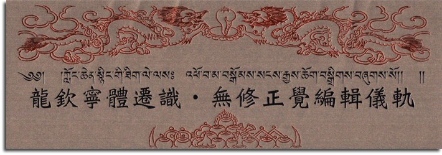 ༄༅། །ཀློང་ཆེན་སྙིང་གི་ཐིག་ལེ་ལས༔ འཕོ་བ་མ་བསྒོམས་སངས་རྒྱས་ཆོག་བསྒྲིགས་བཞུགས་སོ།། །།
龍欽寧體遷識・無修正覺編輯儀軌